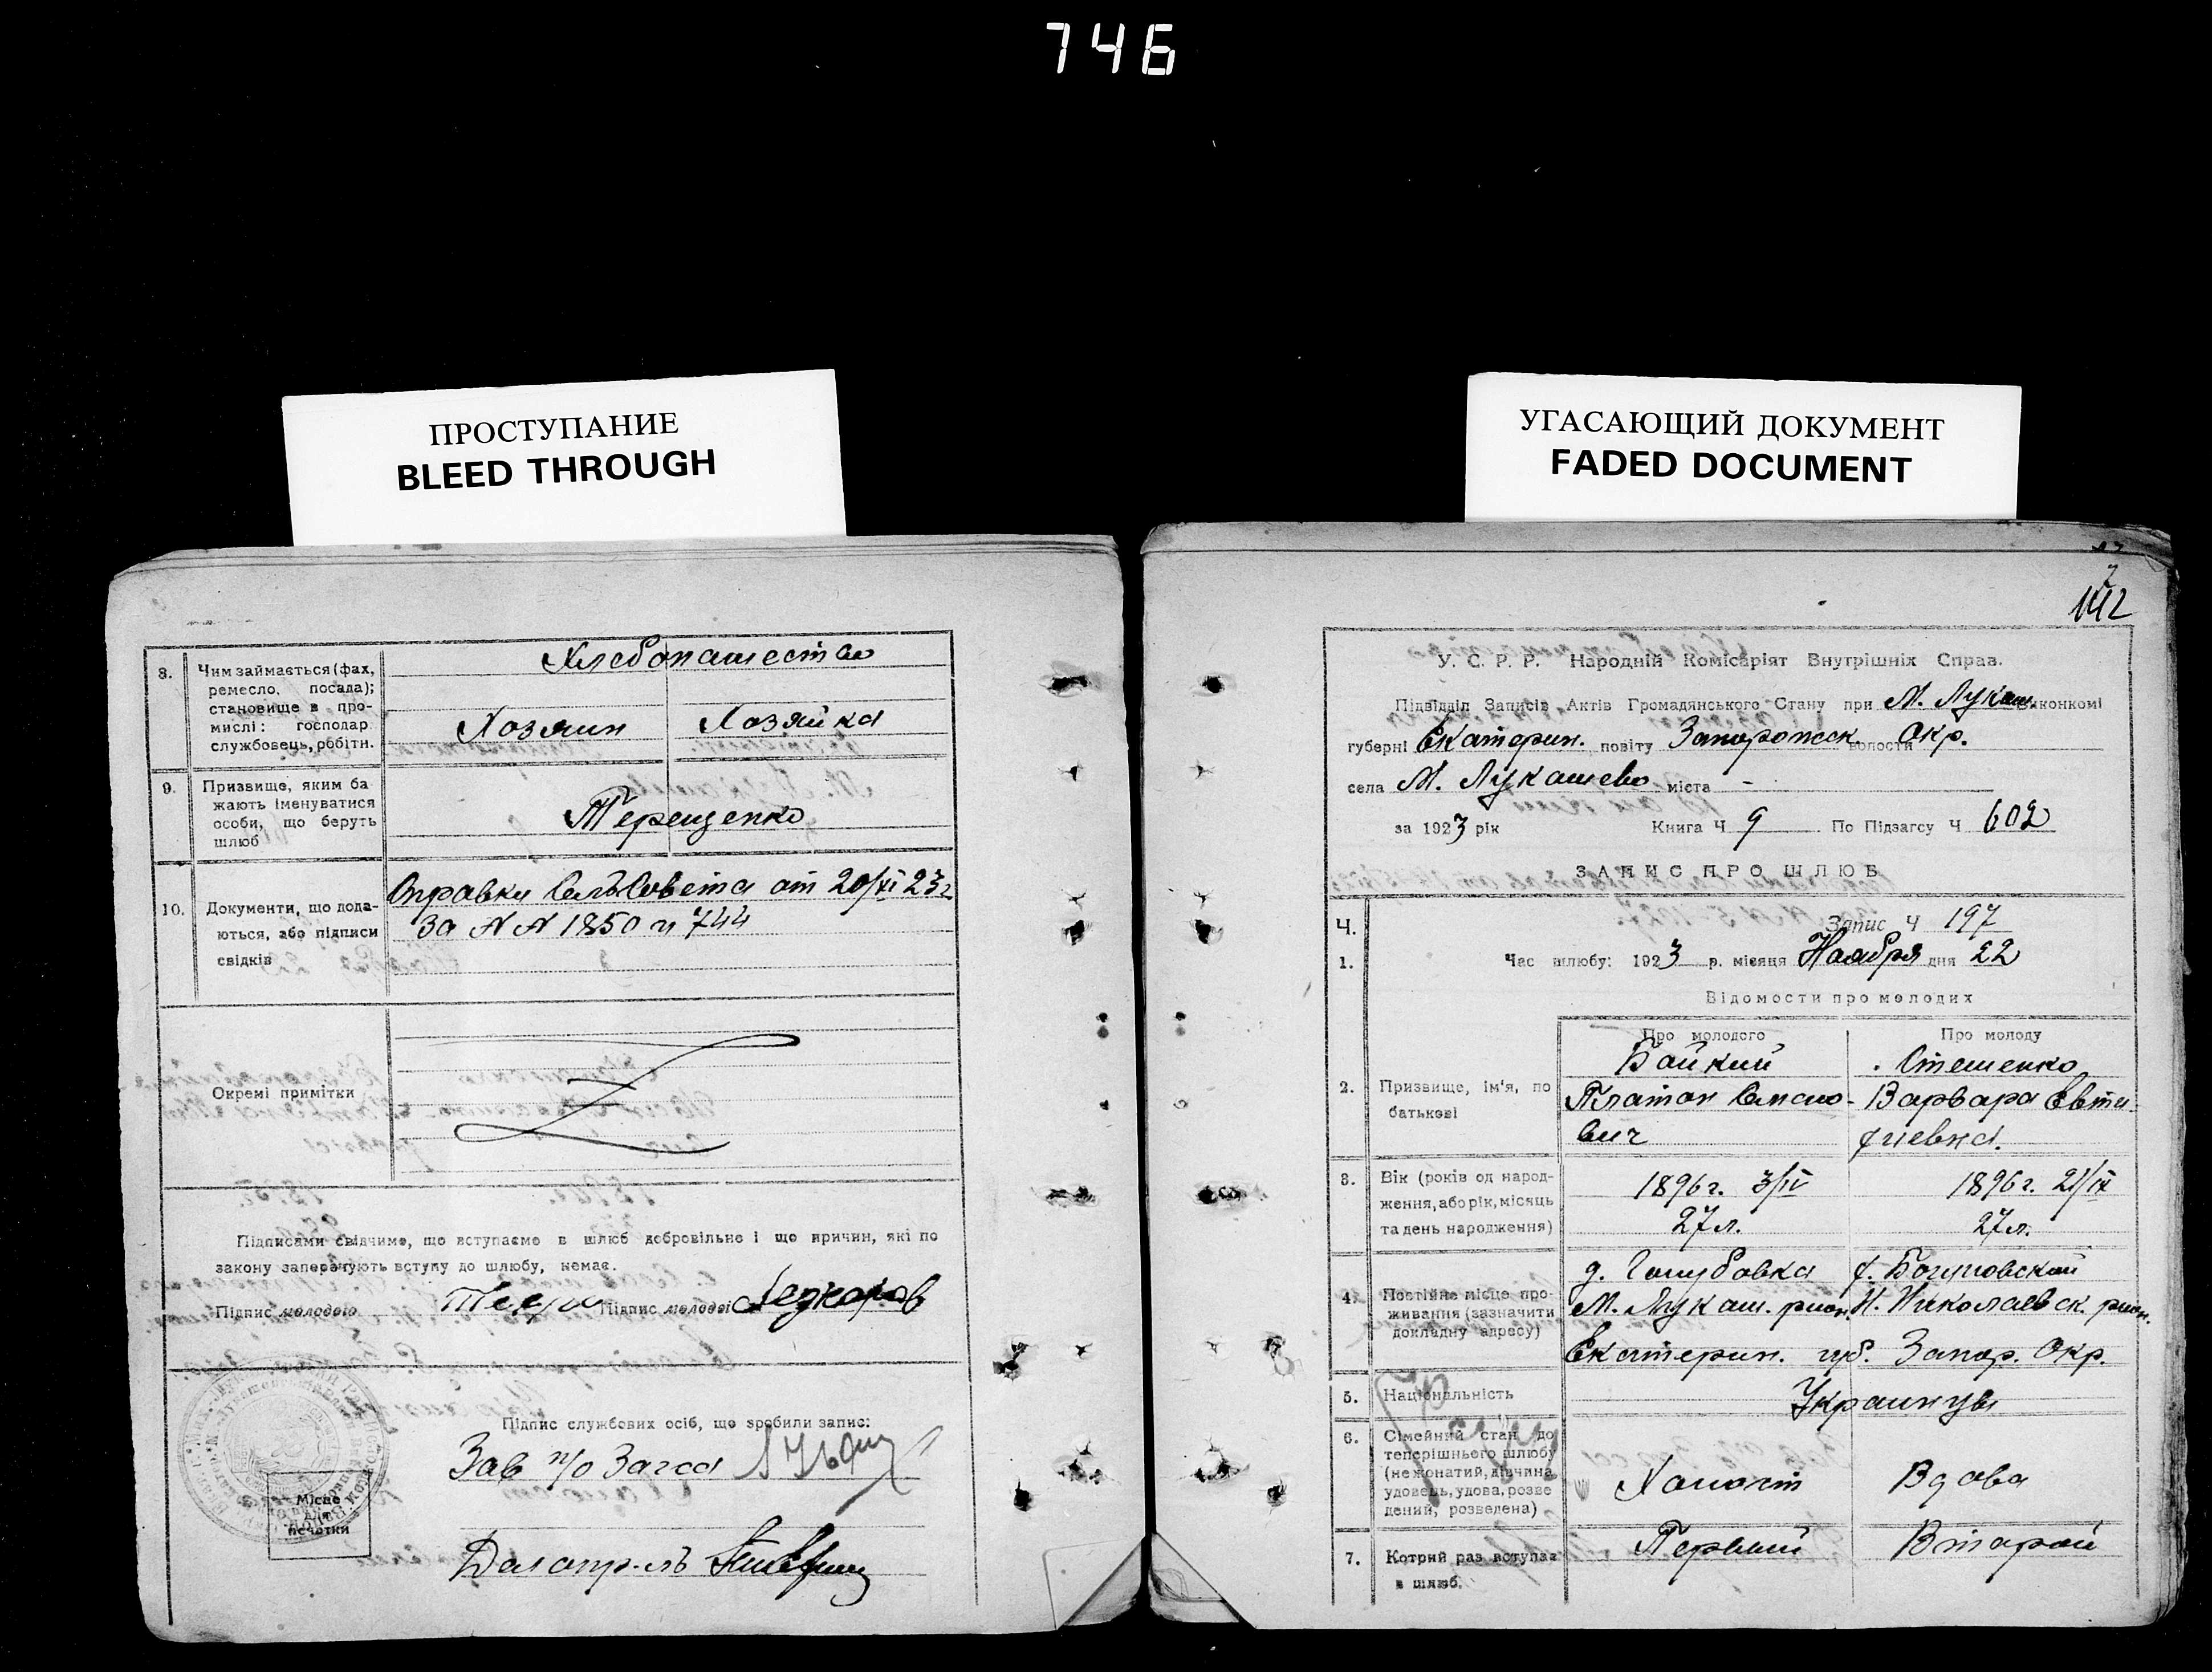 746
ПРОСТУПАНИЕ
BLEED THROUGH
УГАСАЮЩИЙ ДОКУМЕНТ
FADED DOCUMENT
8. Чим займається (фах, ремесло, посада); становище в промислі: господар службовець, робітн.
Хлебопашество
Хозяин Хозяйка
9. Призвище, яким ба
жають іменуватися
особи, що беруть
шлюб
Терещенко
10. Документи, що дода-
ються, або підписи
свідків
Справки СельСовета от 20/XI 23 г
За № № 1850 и 744
Окремі примітки
Підписами свідчимо, що вступаємо в шлюб добровільно і що причин, які по
закону заперечують вступу до шлюбу, немає.
Підпис молодого Підпис молодої
Підпис службових осіб, що зробили запис:
Зав п/о Загса
Делопр-ль
Місце
для
печатки
142
У. С. Р. Р. Народній Комісаріят Внутрішніх Справ.
Підвідділ Записів Актів Громадянського Стану при М. Лукаш. виконкомі
губерні Екатерин. повіту Запорожск волости Окр.
села М. Лукашево міста -
за 1923 рік Книга Ч 9 По Підзагсу Ч 602
ЗАПИС ПРО ШЛЮБ
Ч. Запис Ч 197
1. Час шлюбу: 1923 р. місяця Ноября дня 22
Відомости про молодих
Про молодого Про молоду
2. Призвище, ім'я, по
батькові
Байкий Стешенко
Платон Самсо- Варвара Евти-
вич фиевна.
3. Вік (років од народ-
ження, або рік, місяць
та день народження)
1896 г. 3/IV 1896 г. 21/IX
27 л. 27 л.
4. Постійне місце про-
живання (зазначити
докладну адресу)
д. Голубовка
М. Лукаш. район. Н. Николаевск. район.
Екатерин. губ. Запор. Окр.
5. Національність
Украинцы
6. Сімейний стан до
теперішнього шлюбу
(нежонатий, дівчина,
удовець, удова, розве
дений, розведена)
Холост Вдова
7. Котрий раз вступає
в шлюб.
Первый Второй